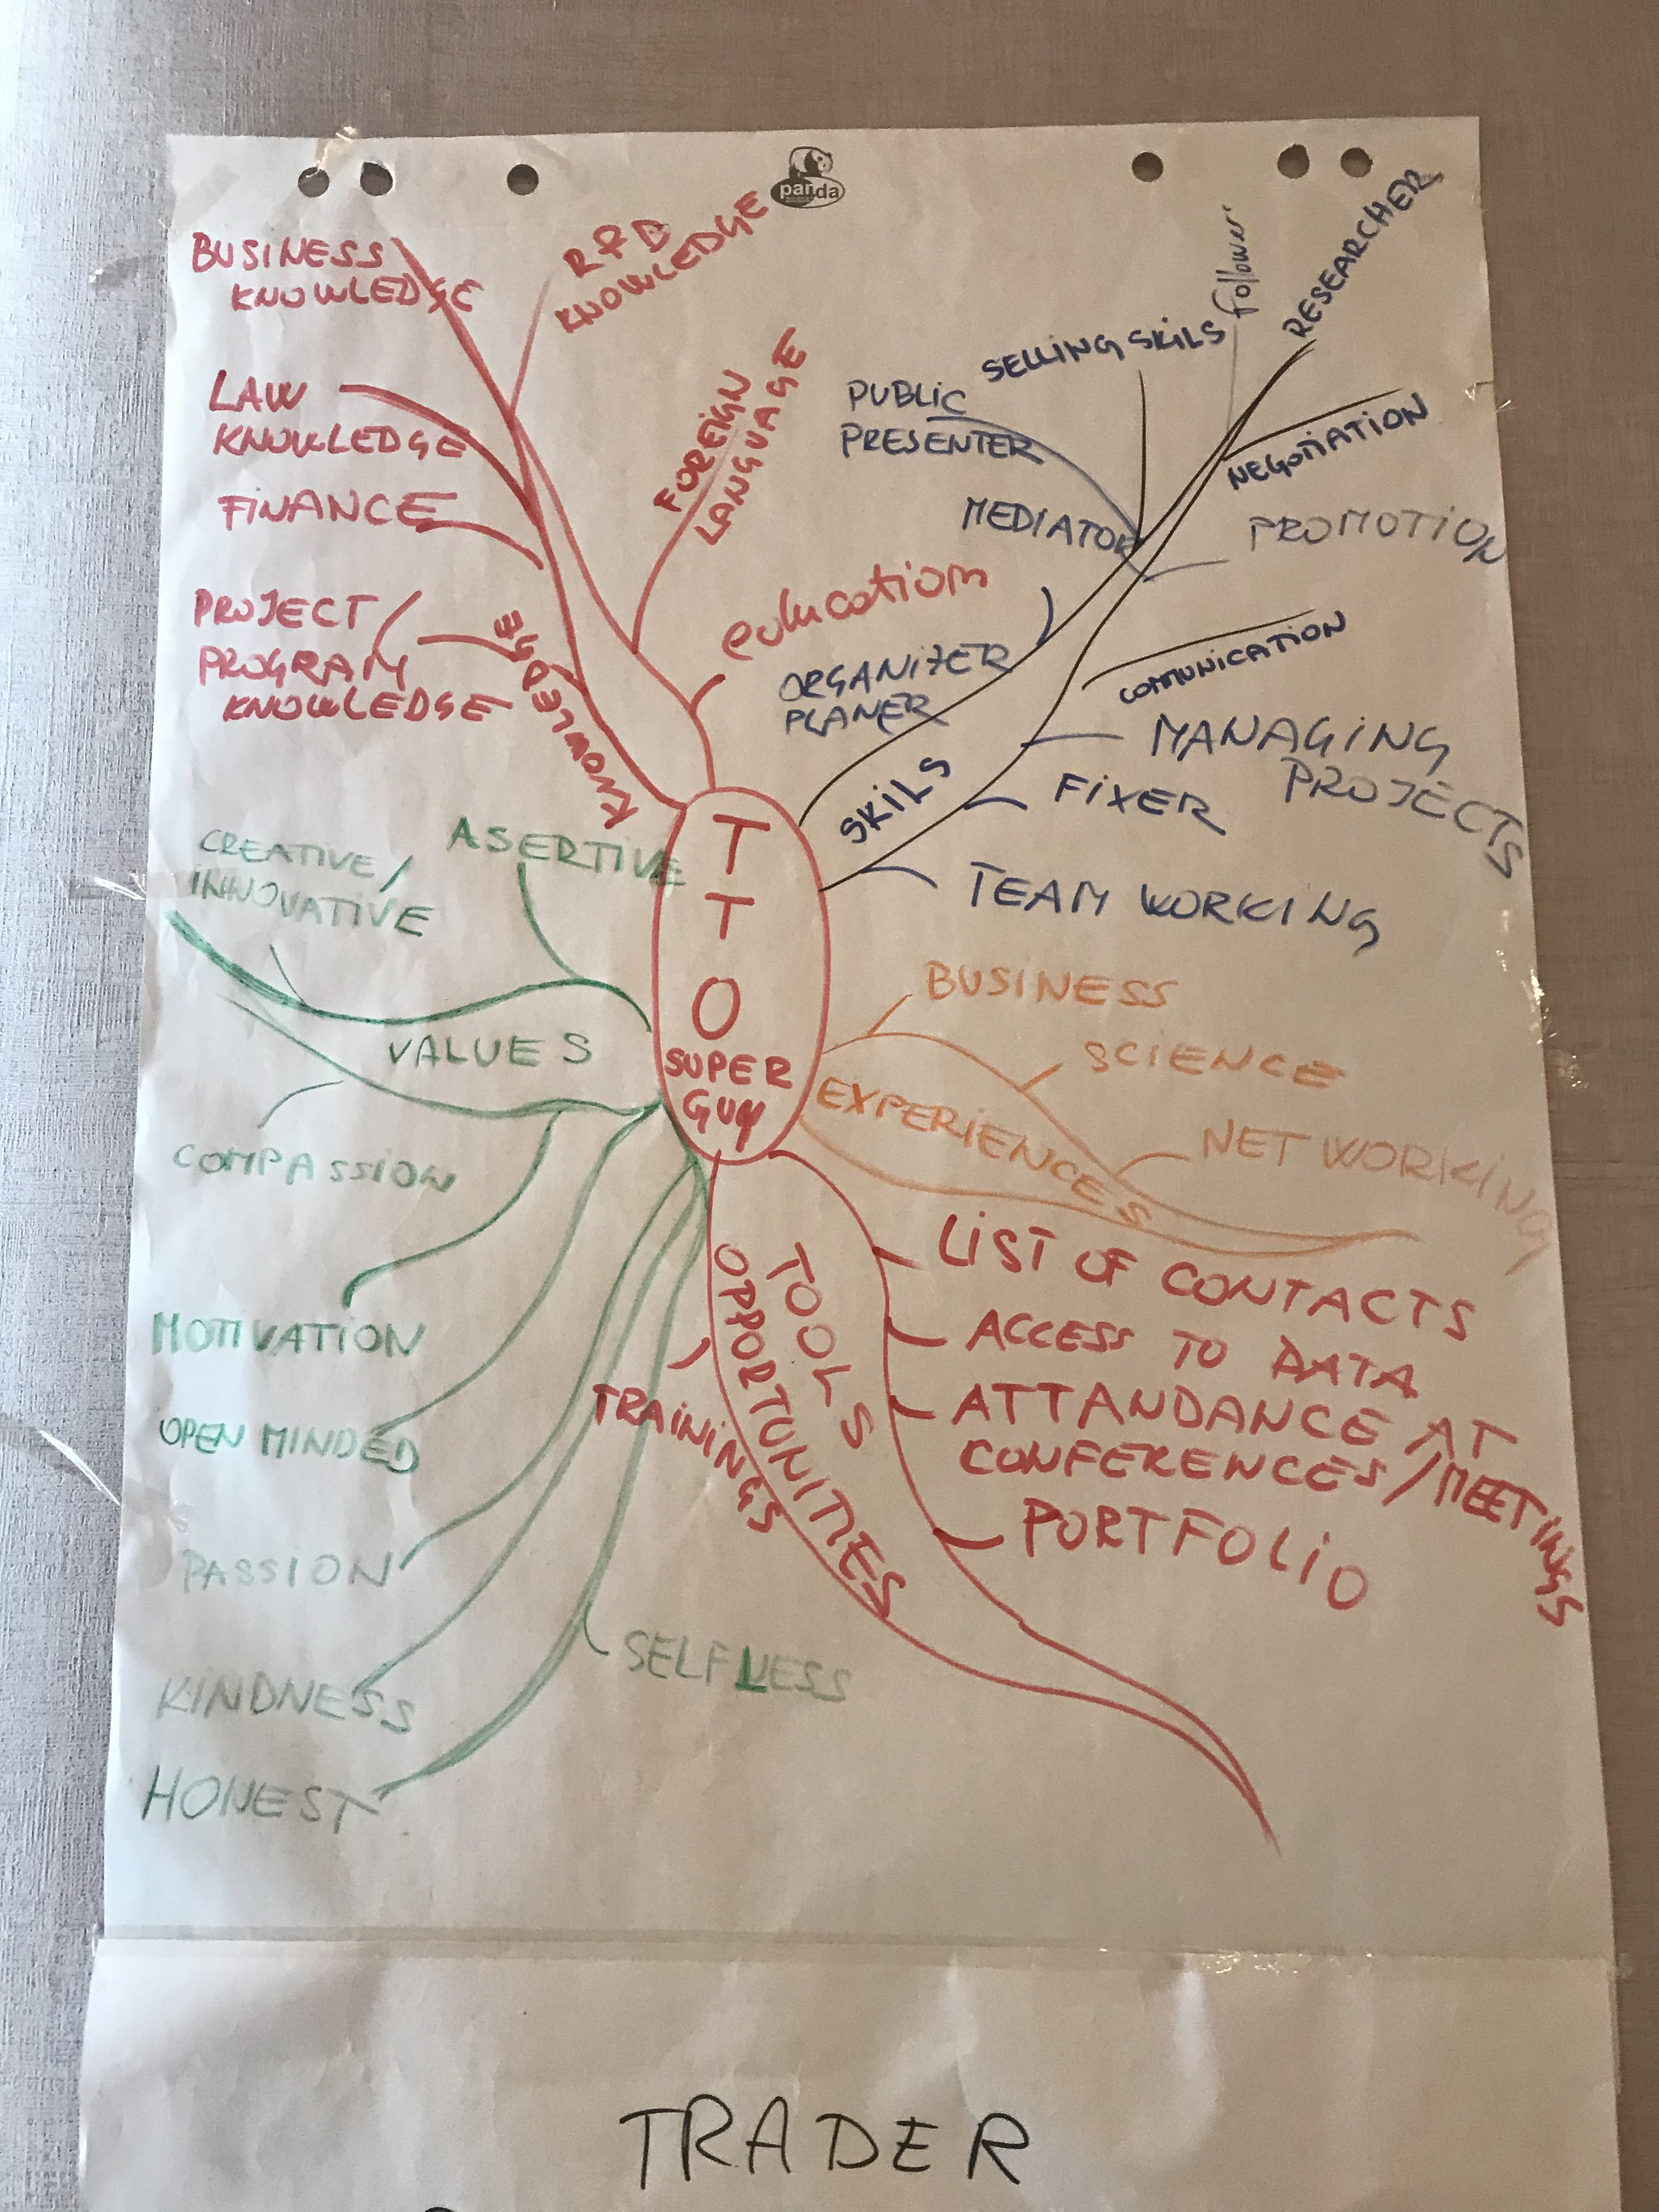 panda
BUSINESS
KNOWLEDGE
R&D
KNOWLEDGE
LAW
KNOWLEDGE
FOREIGN
LANGUAGE
FINANCE
PROJECT/
PROGRAM
KNOWLEDGE
education
KNOWLEDGE
Follower
RESEARCHER
SELLING SKILS
PUBLIC
PRESENTER
NEGOTIATION
MEDIATOR
PROMOTION
ORGANIZER
PLANER
COMMUNICATION
MANAGING
PROJECTS
SKILS
FIXER
TEAM WORKING
T
T
O
SUPER
GUY
ASERTIVE
CREATIVE/
INNOVATIVE
VALUES
COMPASSION
MOTIVATION
OPEN MINDED
PASSION
KINDNESS
HONEST
SELFLESS
BUSINESS
SCIENCE
NETWORKING
EXPERIENCES
TOOLS
OPPORTUNITIES
TRAININGS
LIST OF CONTACTS
ACCESS TO DATA
ATTANDANCE AT
CONFERENCES/MEETINGS
PORTFOLIO
TRADER